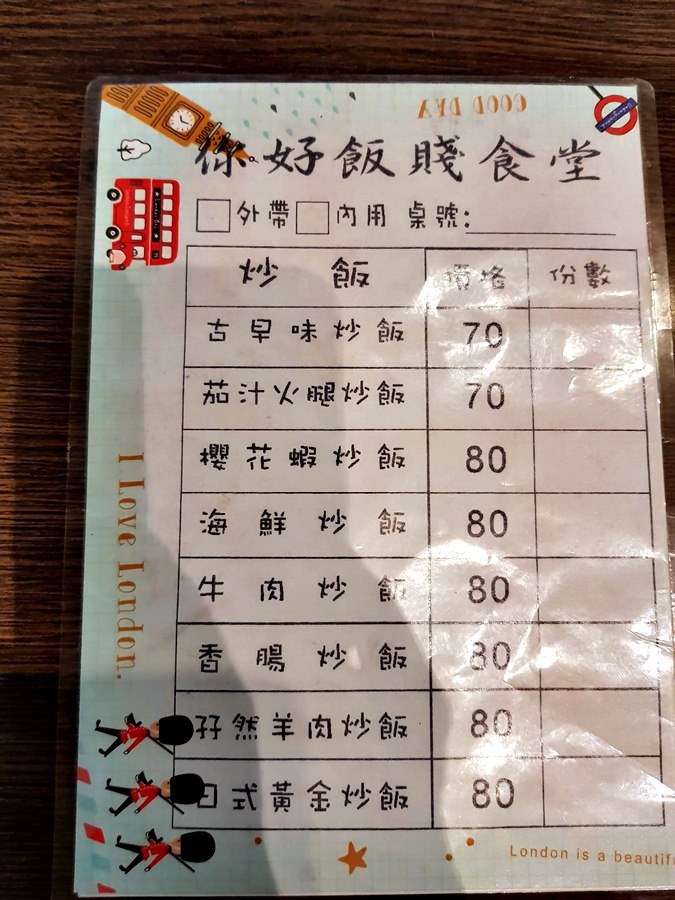 GOOD DAY
你好飯賤食堂
外帶 內用 桌號:
炒飯 價格 份數
古早味炒飯 70
茄汁火腿炒飯 70
櫻花蝦炒飯 80
海鮮炒飯 80
牛肉炒飯 80
香腸炒飯 80
孜然羊肉炒飯 80
日式黃金炒飯 80
I Love London.
London is a beautifu